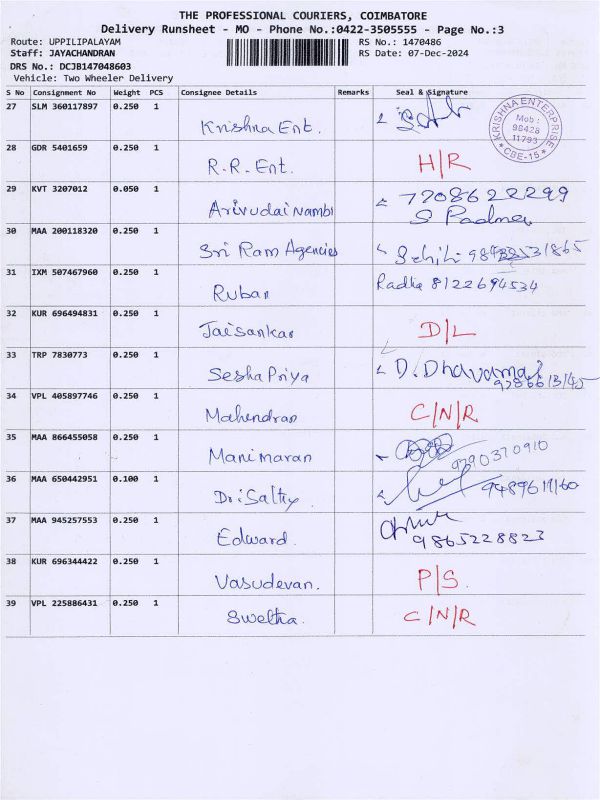 THE PROFESSIONAL COURIERS, COIMBATORE
Delivery Runsheet - MO - Phone No.:0422-3505555 - Page No.:3
Route: UPPILIPALAYAM RS No.: 1470486
Staff: JAYACHANDRAN RS Date: 07-Dec-2024
DRS No.: DCJB147048603
Vehicle: Two Wheeler Delivery
S No Consignment No Weight PCS Consignee Details Remarks Seal & Signature
27 SLM 360117897 0.250 1 Krishna Ent.
KRISHNA ENTERPRISE
Mob:
98428
11793
* CBE-15 *
28 GDR 5401659 0.250 1 R.R. Ent. H/R
29 KVT 3207012 0.050 1 Arivudai Nambi 7708622299
S Padma
30 MAA 200118320 0.250 1 Sri Ram Agencies
31 IXM 507467960 0.250 1 Ruban Radha 8122694534
32 KUR 696494831 0.250 1 Jaisankar D/L
33 TRP 7830773 0.250 1 Sesha Priya D. Dhavamai
34 VPL 405897746 0.250 1 Mahendran C/N/R
35 MAA 866455058 0.250 1 Manimaran 9790370910
36 MAA 650442951 0.100 1
37 MAA 945257553 0.250 1 Edward. 9865228823
38 KUR 696344422 0.250 1 Vasudevan. P/S.
39 VPL 225886431 0.250 1 Swetha. C/N/R